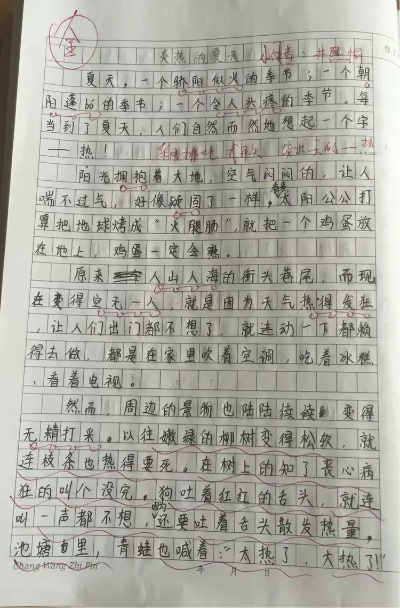 金
炎热的夏天 小作者：
夏天，一个骄阳似火的季节；一个朝
阳蓬bó的季节；一个令人头疼的季节。每
当到了夏天，人们自然而然地想起一个字
——热！
阳光拥抱着大地，空气闷闷的，让人
喘不过气，好像凝固了一样。太阳公公打
算把地球烤成“火腿肠”，就把一个鸡蛋放
在地上，鸡蛋一定会熟。
原来人山人海的街头巷尾，而现
在变得空无一人，就是因为天气热得发狂
，让人们出门都不想了，就连动一下都懒
得去做，都是在家里吹着空调，吃着冰糕
、看着电视。
然而，周边的景物也陆陆续续变得
无精打采。以往嫩绿的柳树变得松软，就
连枝条也热得要死。在树上的知了丧心病
狂的叫个没完。狗吐着红红的舌头，就连
叫一声都不想，还要吐着舌头散发热量，
池塘里，青蛙也喊着：“太热了，太热了！”
Zhang Wang Zhi Pin
年 月 日